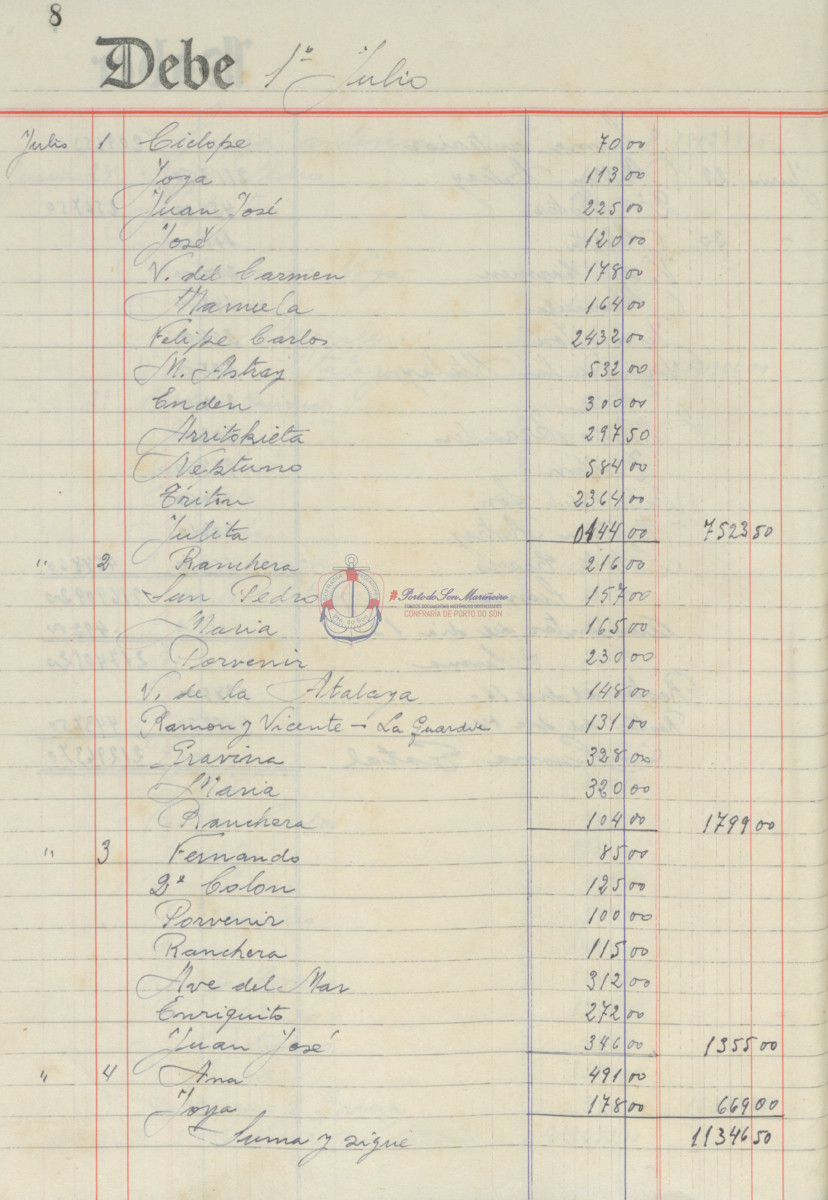 8
Debe 1º Julio
Julio 1 Ciclope 70 00
Joya 113 00
Juan José 225 00
José 120 00
V. del Carmen 178 00
Manuela 164 00
Felipe Carlos 2432 00
M. Astray 532 00
Enden 300 00
Arritokieta 297 50
Neptuno 584 00
Tritón 2364 00
Julita 0144 00 7523 50
" 2 Ranchera 216 00
San Pedro 157 00
Maria 165 00
Porvenir 230 00
V. de la Atalaya 148 00
Ramon y Vicente - La Guardia 131 00
Gravina 328 00
Maria 320 00
Ranchera 104 00 1799 00
" 3 Fernando 85 00
2º Colon 125 00
Porvenir 100 00
Ranchera 115 00
Ave del Mar 312 00
Enriquito 272 00
Juan José 346 00 1355 00
" 4 Ana 491 00
Joya 178 00 669 00
Suma y sigue 11346 50
#PortodoSonMariñeiro
CONFRARÍA DE PORTO DO SON